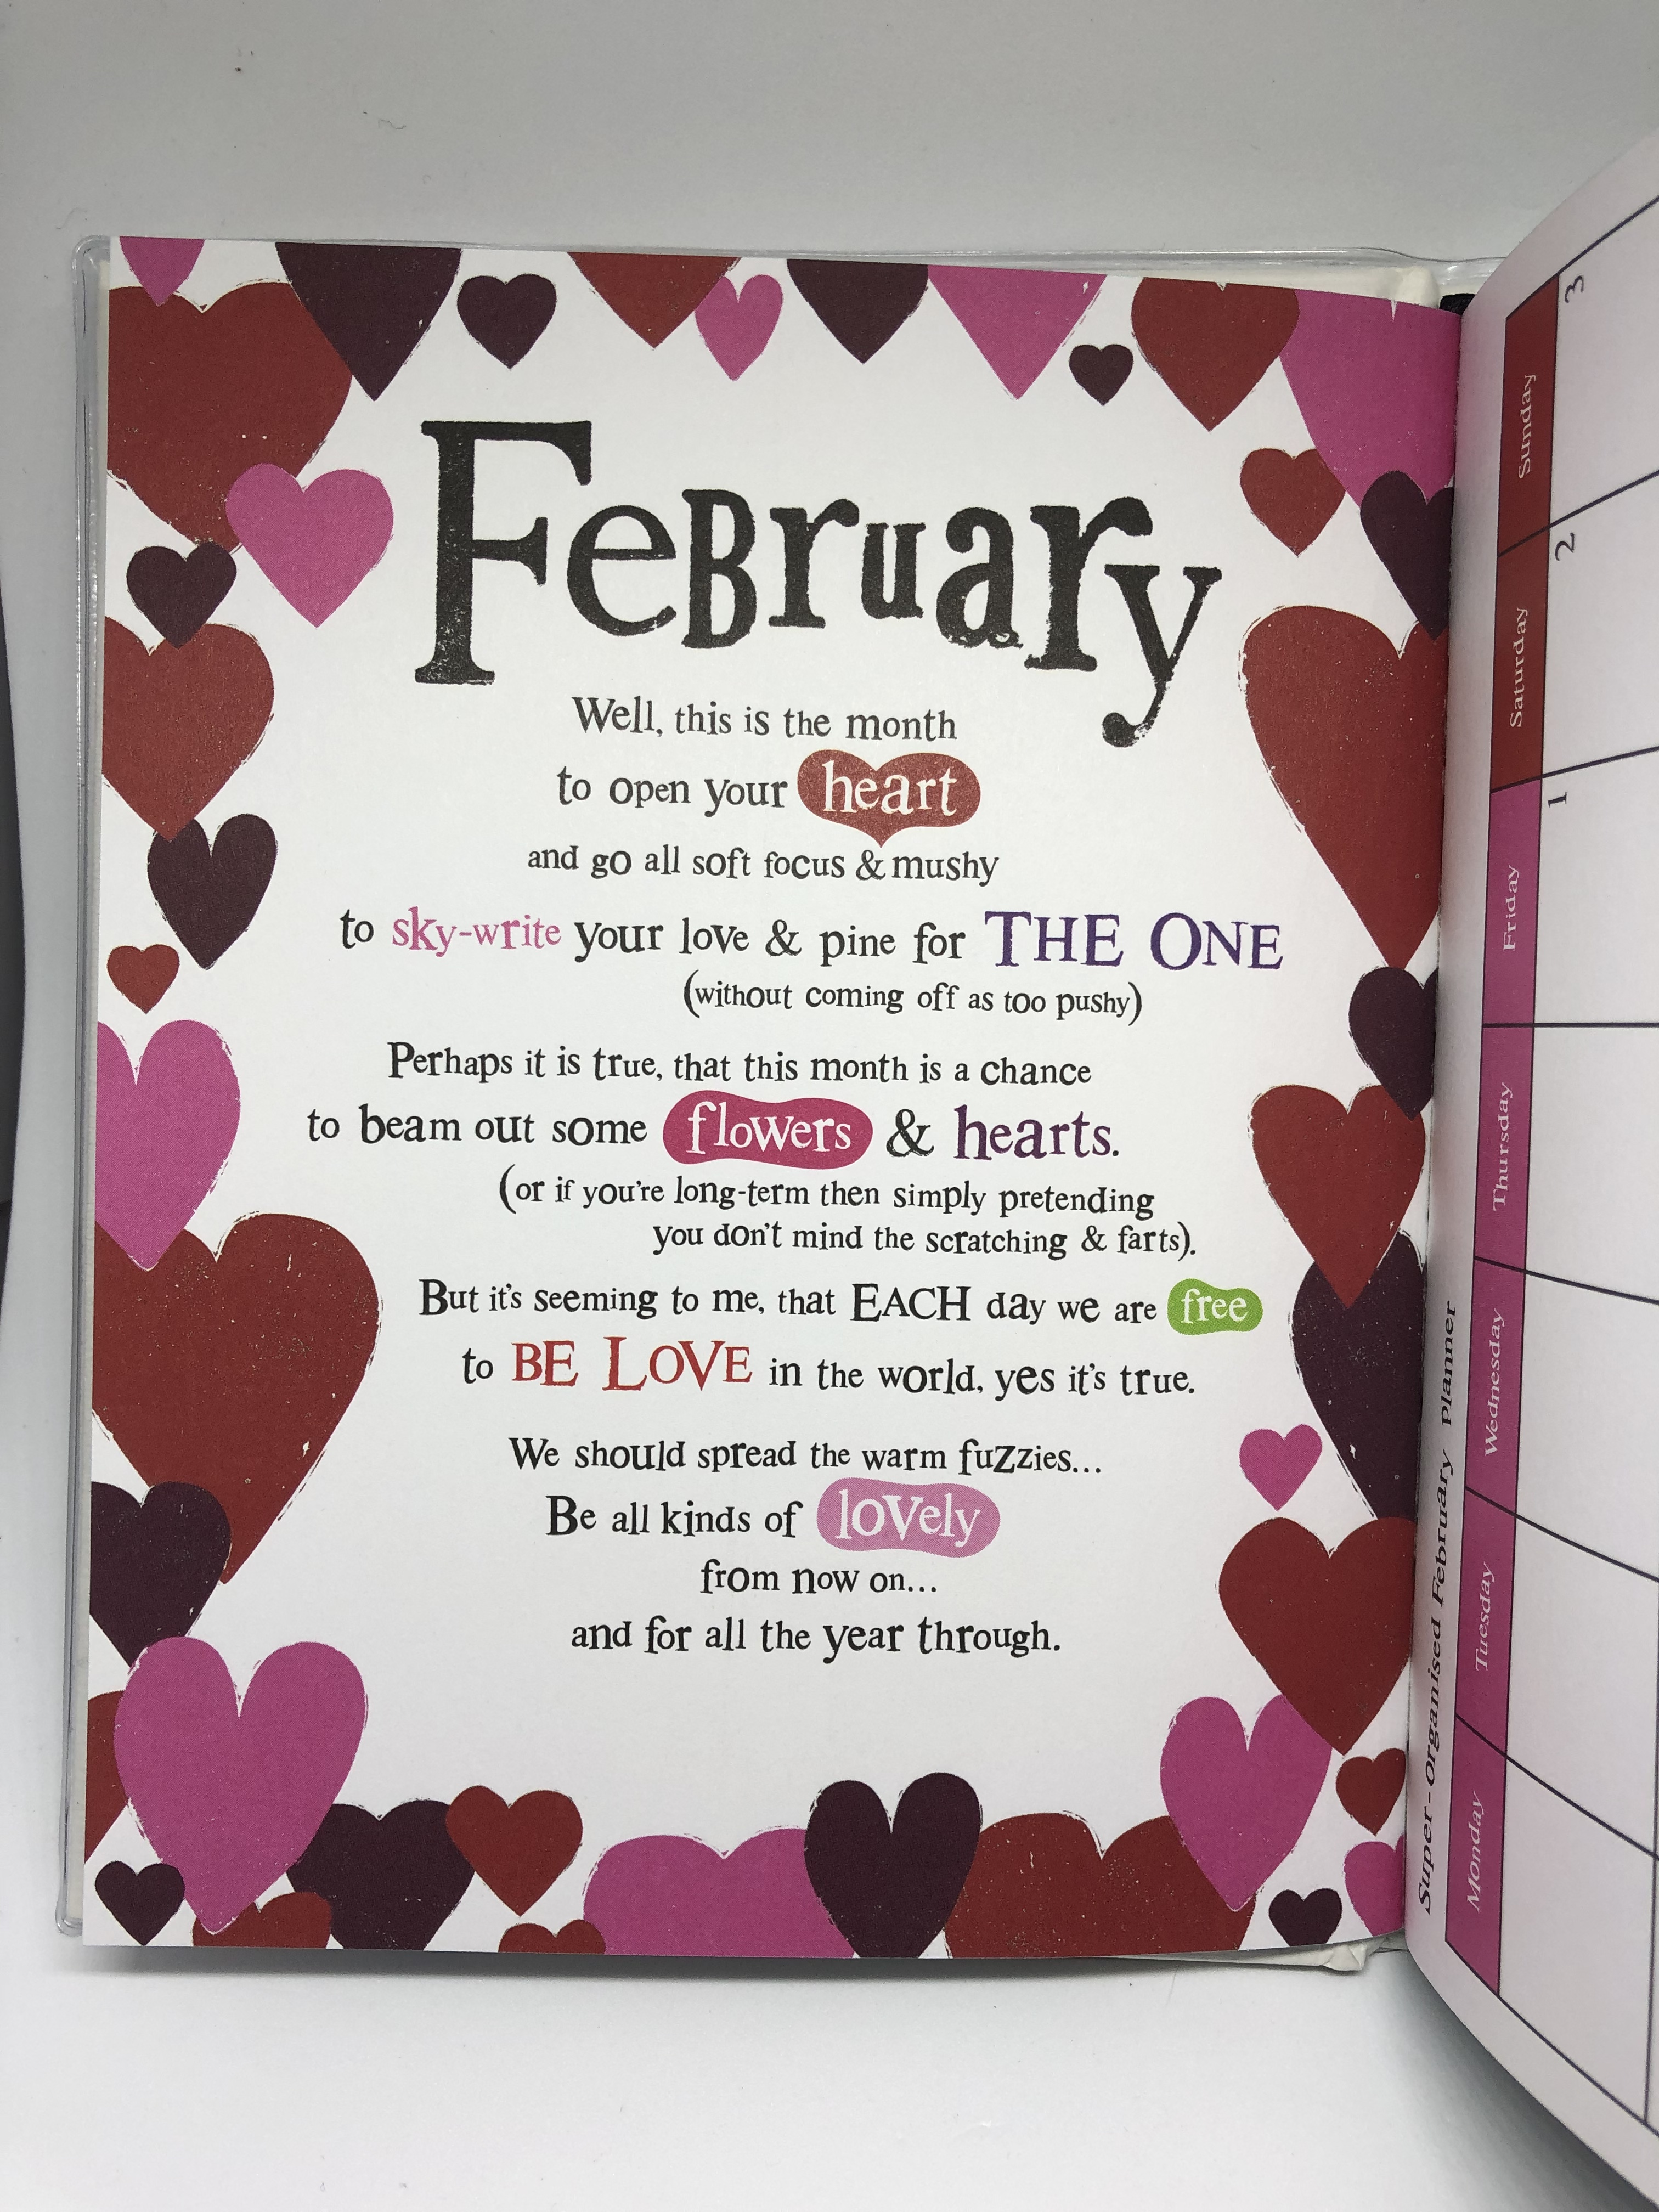 FeBruary
Well, this is the month
to open your heart
and go all soft focus & mushy
to sky-write your love & pine for THE ONE
(without coming off as too pushy)
Perhaps it is true, that this month is a chance
to beam out some flowers & hearts.
(or if you're long-term then simply pretending
you don't mind the scratching & farts).
But it's seeming to me, that EACH day we are free
to BE LOVE in the world, yes it's true.
We should spread the warm fuzzies...
Be all kinds of lovely
from now on...
and for all the year through.
Super-Organised February Planner
Monday Tuesday Wednesday Thursday Friday Saturday Sunday
1 2 3